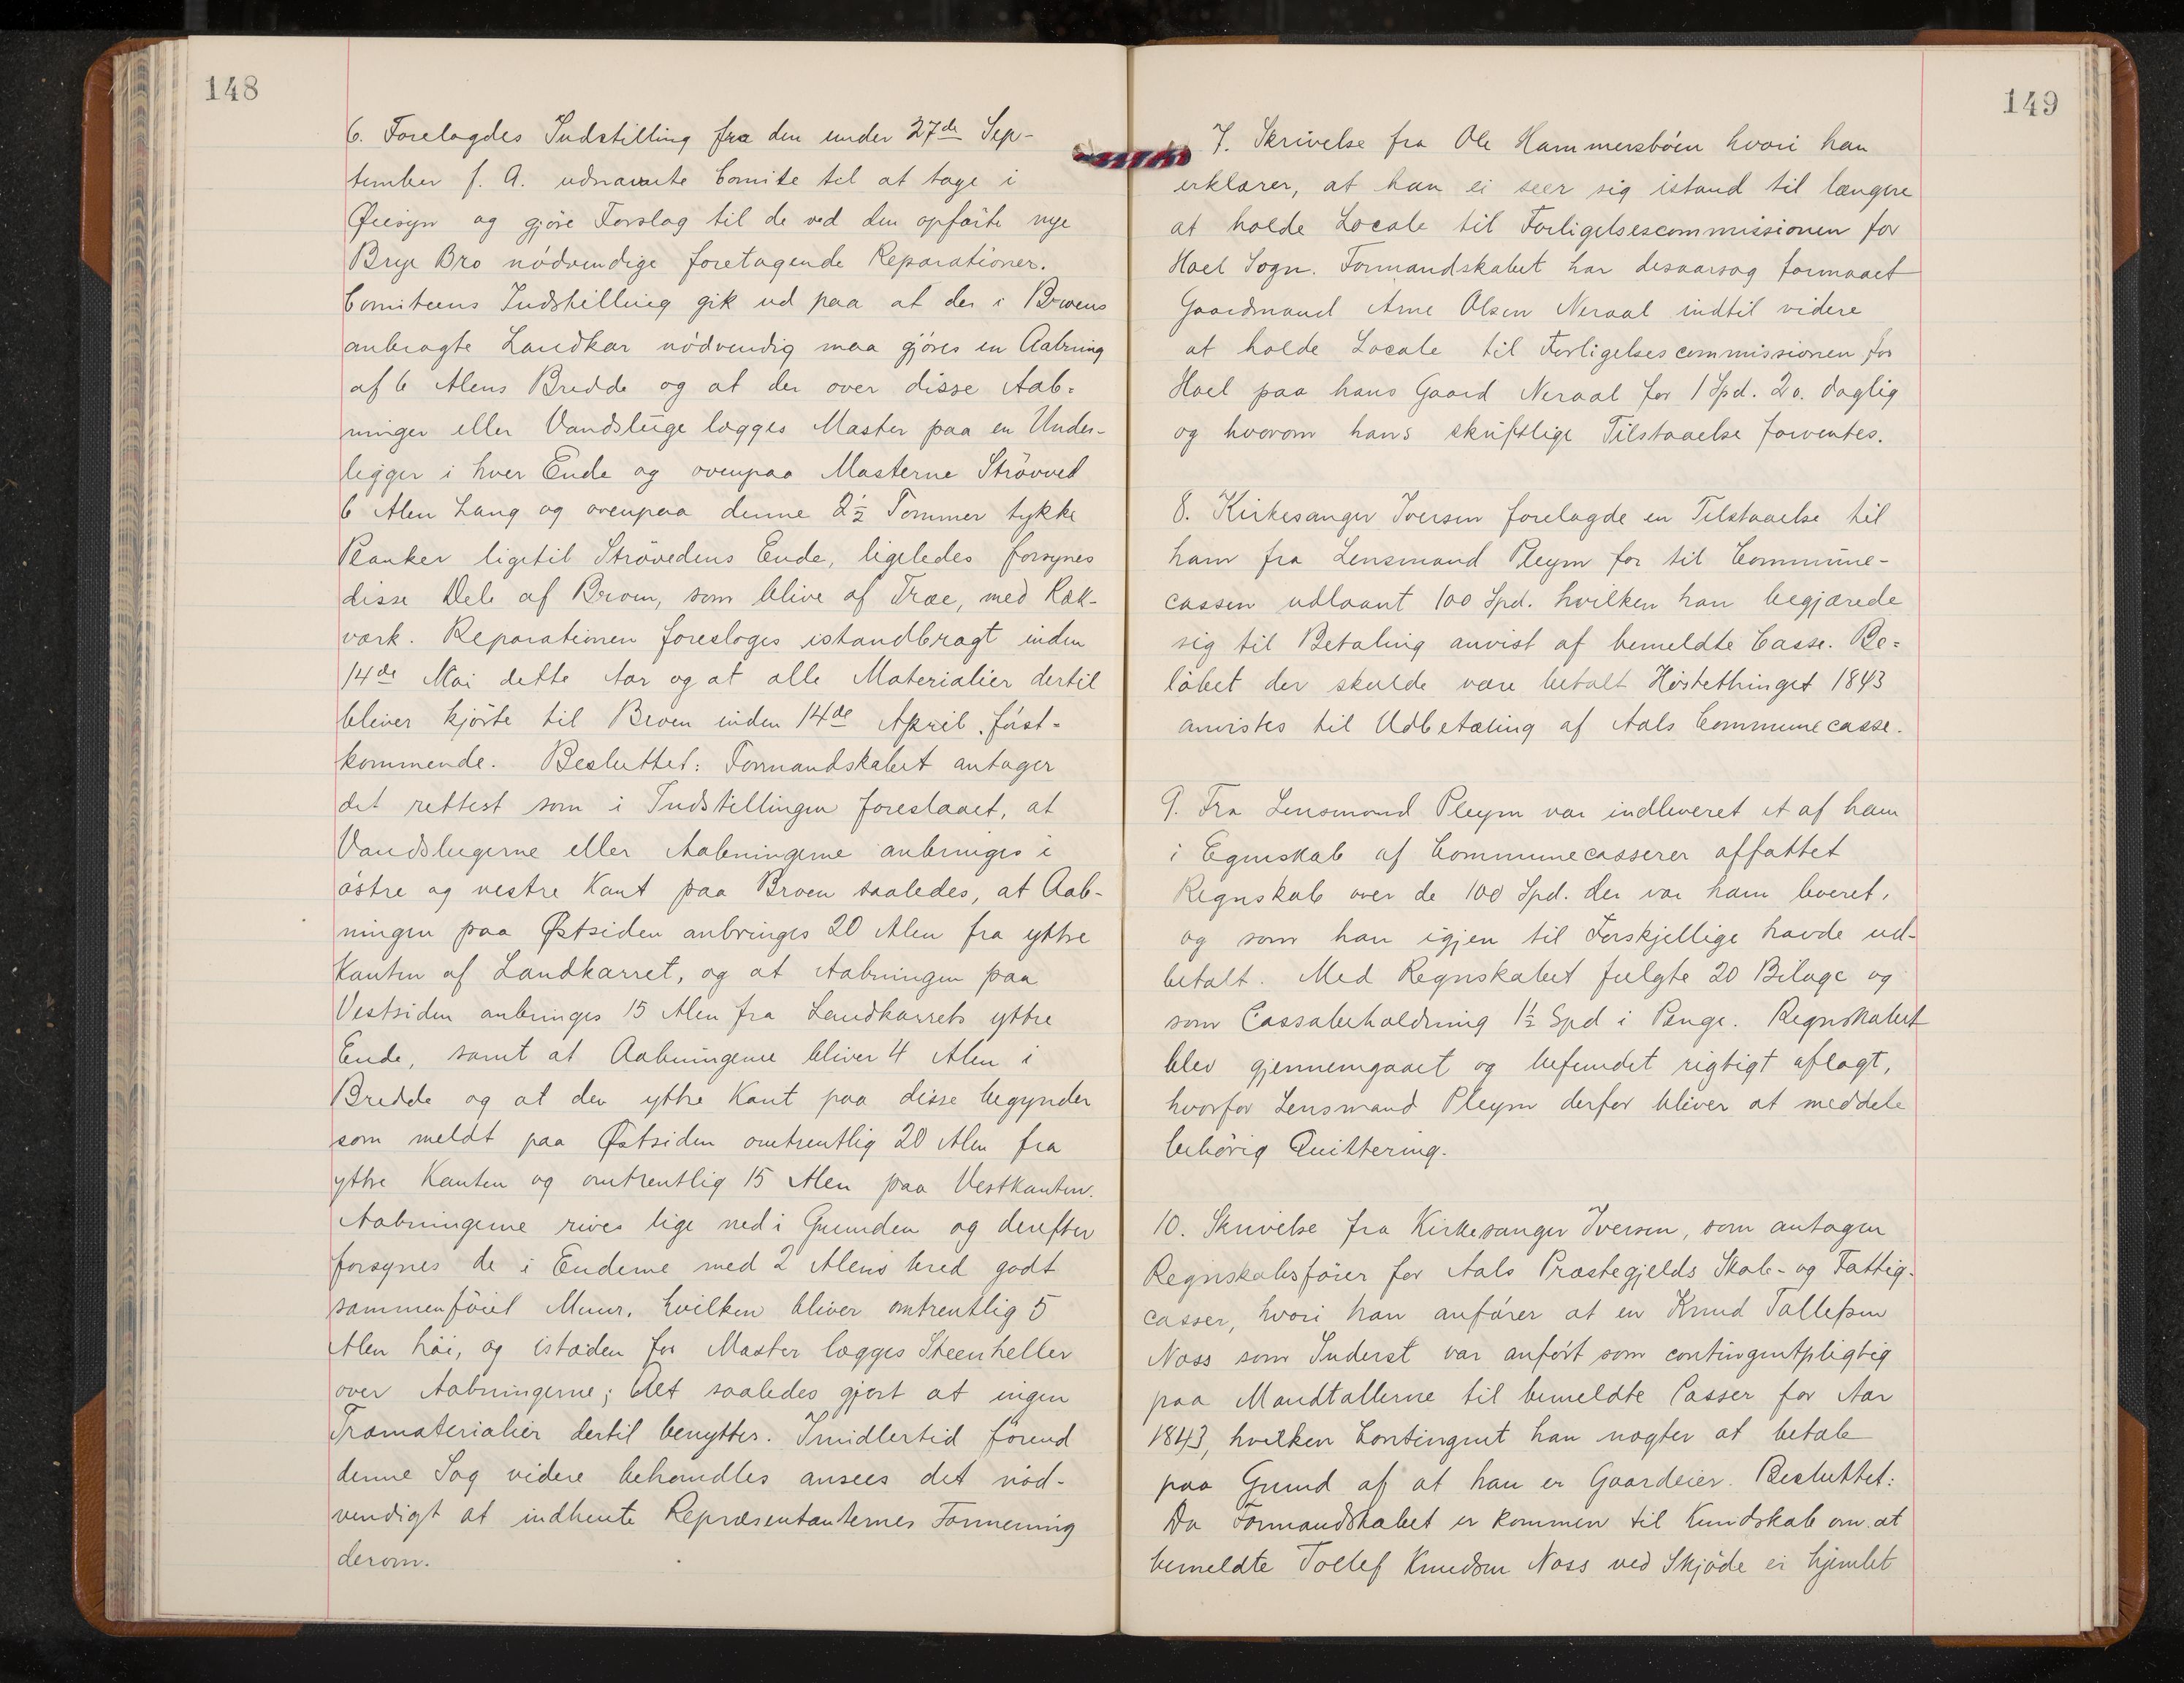 148
6. Forelagdes Indstilling fra den under 27de Sep-
tember f. A. udnævnte Comite til at tage i
Øiesyn og gjøre Forslag til de ved den opførte nye
Brye Bro nødvendige foretagende Reparationer.
Comiteens Indstilling gik ud paa at der i Broens
anbragte Landkar nødvendig maa gjøres en Aabning
af 6 Alens Bredde og at der over disse Aab=
ninger eller Vandsluge lægges Master paa en Under-
legger i hver Ende og ovenpaa Masterne Strøved
6 Alen Lang og ovenpaa denne 2½ Tommer tykke
Planker ligetil Strøvedens Ende, ligeledes forsynes
disse Dele af Broen, som blive af Træ, med Ræk-
værk. Reparationen foreslages istandbragt inden
14de Mai dette Aar og at alle Materialier dertil
bliver kjørte til Broen inden 14de April først-
kommende. Besluttet: Formandskabet antager
det rettest som i Indstillingen foreslaaet, at
Vandslugerne eller Aabningerne anbringes i
østre og vestre Kant paa Broen saaledes, at Aab-
ningen paa Østsiden anbringes 20 Alen fra yttre
Kanten af Landkarret, og at Aabningen paa
Vestsiden anbringes 15 Alen fra Landkarrets yttre
Ende, samt at Aabningerne bliver 4 Alen i
Bredde og at den yttre Kant paa disse begynder
som meldt paa Østsiden omtrentlig 20 Alen fra
yttre Kanten og omtrentlig 15 Alen paa Vestkanten.
Aabningerne rives lige ned i Grunden og derefter
forsynes de i Enderne med 2 Alens bred godt
sammenføiet Muur, hvilken bliver omtrentlig 5
Alen høi, og istæden for Master lægges Steenheller
over Aabningerne; Alt saaledes gjort at ingen
Træmaterialier dertil benyttes. Imidlertid førend
denne Sag videre behandles ansees det nød-
vendigt at indhente Repræsentanternes Formening
derom.
149
7. Skrivelse fra Ole Hammersbøen hvori han
erklærer, at han ei seer sig istand til længere
at holde Locale til Forligelsescommissionen for
Hoel Sogn. Formandskabet har desaarsag formaaet
Gaardmand Arne Olsen Neraal indtil videre
at holde Locale til Forligelsescommissionen for
Hoel paa hans Gaard Neraal for 1 Spd. 2o. daglig
og hvorom hans skriftlige Tilstaaelse forventes.
8. Kirkesanger Iversen forelagde en Tilstaaelse til
ham fra Lensmand Pleym for til Commune-
cassen udlaant 100 Spd. hvilken han begjærede
sig til Betaling anvist af bemeldte Casse. Be=
løbet der skulde være betalt Høstethinget 1843
anvistes til Udbetaling af Aals Communecasse.
9. Fra Lensmand Pleym var indleveret et af ham
i Egenskab af Communecasserer affattet
Regnskab over de 100 Spd. der var ham leveret,
og som han igjen til Forskjellige havde ud-
betalt. Med Regnskabet fulgte 20 Bilage og
som Cassabeholdning 1½ Spd i Penge. Regnskabet
blev gjennemgaaet og befundet rigtigt aflagt,
hvorfor Lensmand Pleym derfor bliver at meddele
behørig Quittering.
10. Skrivelse fra Kirkesanger Iversen, som antagen
Regnskabsfører for Aals Præstegjelds Skole- og Fattig-
casser, hvori han anfører at en Knud Tollefsen
Noss som Inderst var anført som contingentpligtig
paa Mandtallerne til bemeldte Casser for Aar
1843, hvilken Contingent han nægter at betale
paa Grund af at han er Gaardeier. Besluttet:
Da Formandskabet er kommen til Kundskab om at
bemeldte Tollef Knudsen Noss ved Skjøde er hjemlet